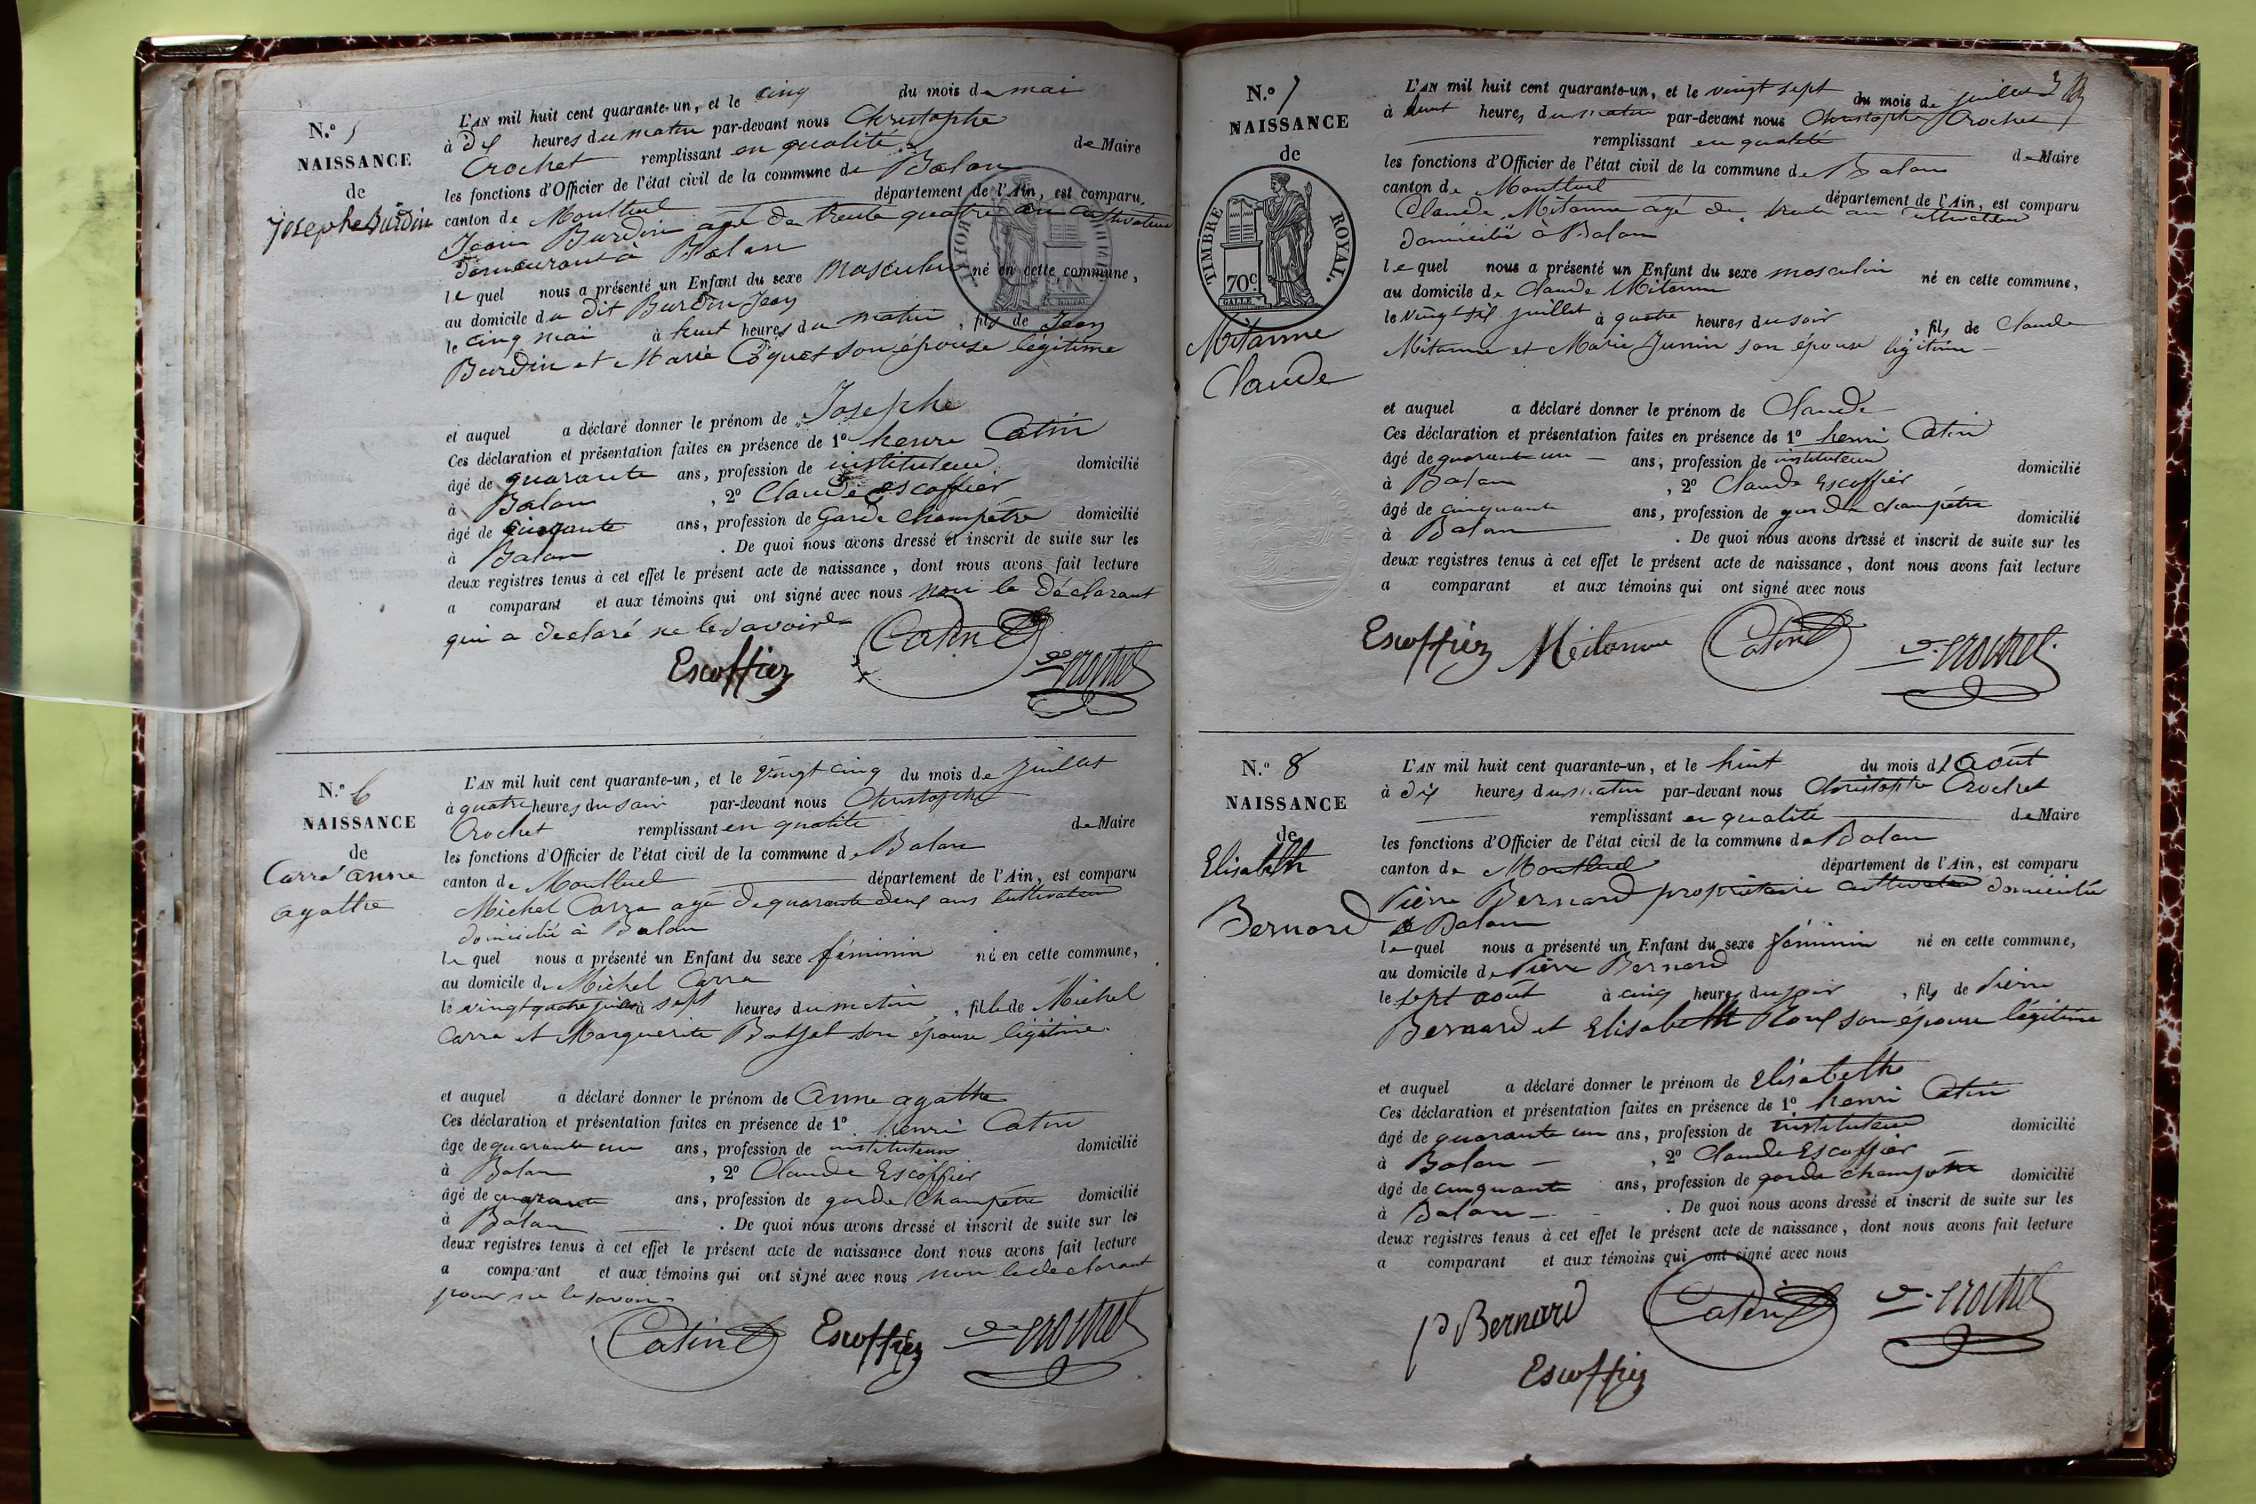 N.º 5
NAISSANCE
de
Josephe Burdin
L'AN mil huit cent quarante-un, et le cinq du mois de mai
à dix heures du matin par-devant nous Christophe
Crochet remplissant en qualité de Maire
les fonctions d'Officier de l'état civil de la commune de Balan
canton de Montluel département de l'Ain, est comparu
Jean Burdin agé de trente quatre ans cultivateur
demeurant à Balan
le quel nous a présenté un Enfant du sexe masculin né en cette commune,
au domicile du dit Burdin Jean
le cinq mai à huit heures du matin, fils de Jean
Burdin et Marie Coquet son épouse légitime
et auquel a déclaré donner le prénom de Josephe
Ces déclaration et présentation faites en présence de 1º henri Catin
âgé de quarante ans, profession de instituteur domicilié
à Balan, 2º Claude Escoffier
âgé de ans, profession de Garde Champêtre domicilié
à Balan. De quoi nous avons dressé et inscrit de suite sur les
deux registres tenus à cet effet le présent acte de naissance, dont nous avons fait lecture
a comparant et aux témoins qui ont signé avec nous non le Déclarant
qui a declaré ne le savoir
Catin
Escoffier
Crochet
N.º 6
NAISSANCE
de
Carra anne
agathe
L'AN mil huit cent quarante-un, et le vingt cinq du mois de juillet
à quatre heures du soir par-devant nous Christophe
Crochet remplissant en qualité de Maire
les fonctions d'Officier de l'état civil de la commune de Balan
canton de Montluel département de l'Ain, est comparu
Michel Carra agé de quarante deux ans Cultivateur
domicilié à Balan
le quel nous a présenté un Enfant du sexe féminin né en cette commune,
au domicile de Michel Carra
le vingt quatre juillet à sept heures du matin, fille de Michel
Carra et Marguerite son épouse légitime
et auquel a déclaré donner le prénom de Anne agathe
Ces déclaration et présentation faites en présence de 1º henri Catin
âgé de quarante un ans, profession de instituteur domicilié
à Balan, 2º Claude Escoffier
âgé de ans, profession de garde champêtre domicilié
à Balan. De quoi nous avons dressé et inscrit de suite sur les
deux registres tenus à cet effet le présent acte de naissance dont nous avons fait lecture
a comparant et aux témoins qui ont signé avec nous non le declarant
pour ne le savoir
Catin Escoffier Crochet
N.º 7
NAISSANCE
de
TIMBRE ROYAL.
70c
Mitanne
Claude
L'AN mil huit cent quarante-un, et le vingt sept du mois de juillet
à huit heures du matin par-devant nous Christophe Crochet
remplissant en qualité de Maire
les fonctions d'Officier de l'état civil de la commune de Balan
canton de Montluel département de l'Ain, est comparu
Claude Mitanne agé de trente ans cultivateur
domicilié à Balan
le quel nous a présenté un Enfant du sexe masculin né en cette commune,
au domicile de Claude Mitanne
le vingt six juillet à quatre heures du soir, fils de Claude
Mitanne et Marie Junin son épouse légitime
et auquel a déclaré donner le prénom de Claude
Ces déclaration et présentation faites en présence de 1º henri Catin
âgé de quarante un ans, profession de instituteur domicilié
à Balan, 2º Claude Escoffier
âgé de cinquante ans, profession de garde champêtre domicilié
à Balan. De quoi nous avons dressé et inscrit de suite sur les
deux registres tenus à cet effet le présent acte de naissance, dont nous avons fait lecture
a comparant et aux témoins qui ont signé avec nous
Escoffier Mitanne Catin Crochet
N.º 8
NAISSANCE
de
Elisabeth
Bernard
L'AN mil huit cent quarante-un, et le huit du mois d'Août
à dix heures du matin par-devant nous Christophe Crochet
remplissant en qualité de Maire
les fonctions d'Officier de l'état civil de la commune de Balan
canton de Montluel département de l'Ain, est comparu
Pierre Bernard propriétaire cultivateur domicilié
à Balan
le quel nous a présenté un Enfant du sexe féminin né en cette commune,
au domicile de Pierre Bernard
le sept août à cinq heures du soir, fils de Pierre
Bernard et Elisabeth Roux son épouse légitime
et auquel a déclaré donner le prénom de Elisabethe
Ces déclaration et présentation faites en présence de 1º henri Catin
âgé de quarante un ans, profession de instituteur domicilié
à Balan, 2º Claude Escoffier
âgé de cinquante ans, profession de garde champêtre domicilié
à Balan. De quoi nous avons dressé et inscrit de suite sur les
deux registres tenus à cet effet le présent acte de naissance, dont nous avons fait lecture
a comparant et aux témoins qui ont signé avec nous
P Bernard Catin Crochet
Escoffier